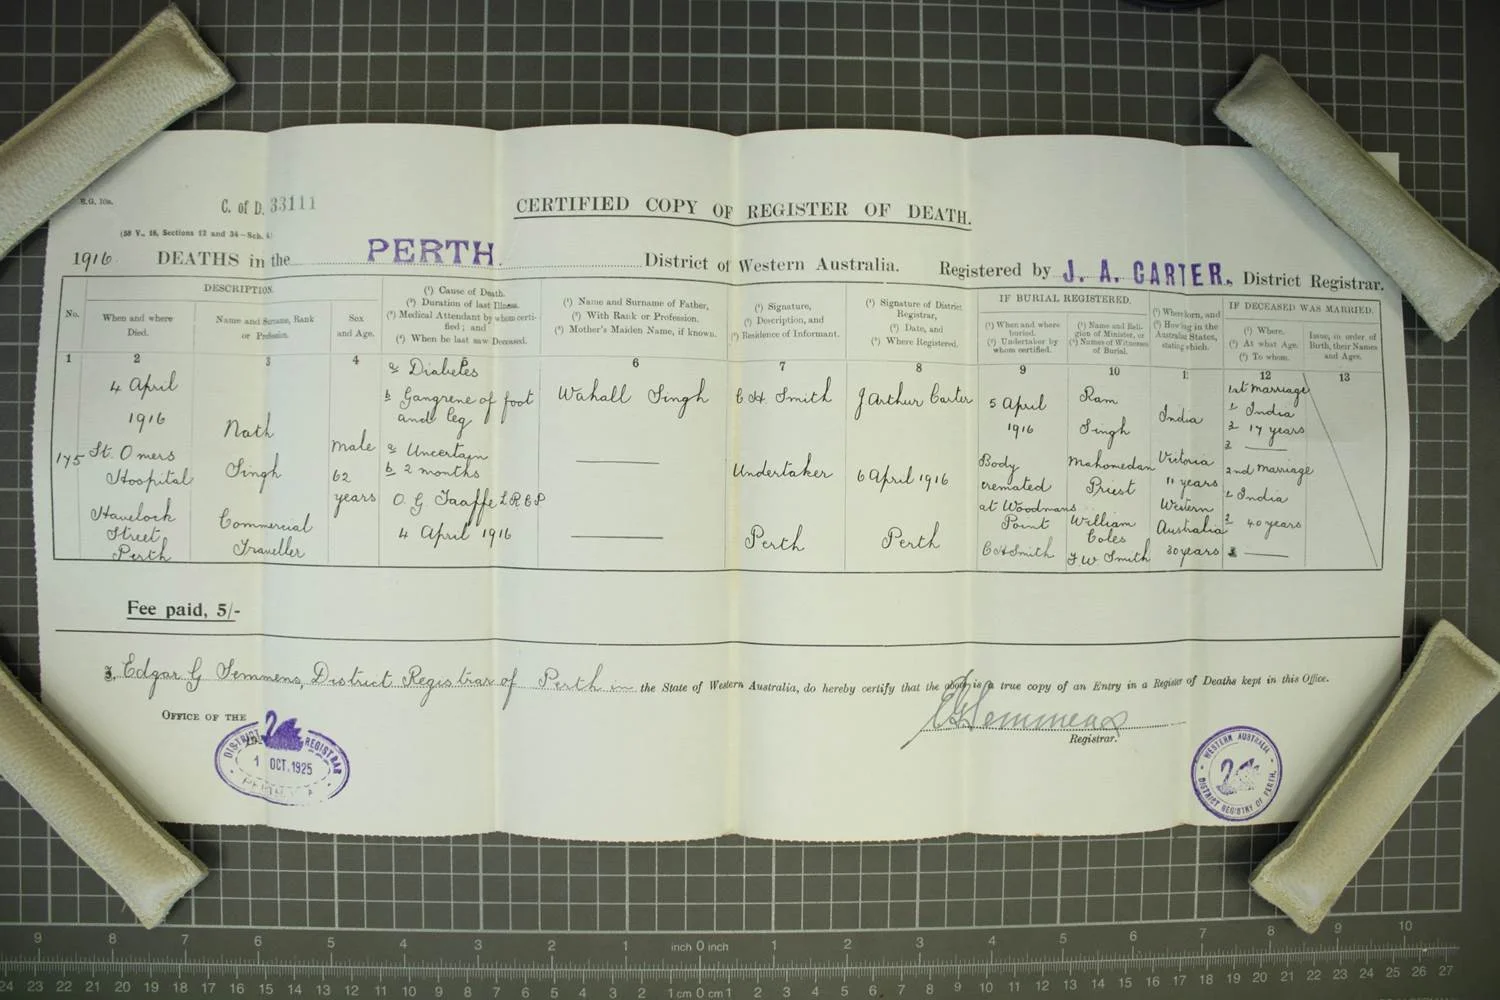 R.G. 10a.
C. of D. 33111
CERTIFIED COPY OF REGISTER OF DEATH.
(58 V., 16, Sections 12 and 34—Sch. 4)
1916. DEATHS in the PERTH. District of Western Australia. Registered by J. A. CARTER., District Registrar.
No.
DESCRIPTION.
When and where
Died.
Name and Surname, Rank
or Profession.
Sex
and Age.
(¹) Cause of Death.
(²) Duration of last Illness.
(³) Medical Attendant by whom certi-
fied; and
(⁴) When he last saw Deceased.
(¹) Name and Surname of Father,
(²) With Rank or Profession.
(³) Mother's Maiden Name, if known.
(¹) Signature,
(²) Description, and
(³) Residence of Informant.
(¹) Signature of District
Registrar,
(²) Date, and
(³) Where Registered.
IF BURIAL REGISTERED.
(¹) When and where
buried.
(²) Undertaker by
whom certified.
(¹) Name and Reli-
gion of Minister, or
(²) Names of Witnesses
of Burial.
(¹) Where born, and
(²) How long in the
Australian States,
stating which.
IF DECEASED WAS MARRIED.
(¹) Where.
(²) At what Age.
(³) To whom.
Issue, in order of
Birth, their Names
and Ages.
1 2 3 4 5 6 7 8 9 10 11 12 13
175
4 April
1916
St. Omers
Hospital
Havelock
Street
Perth
Nath
Singh
Commercial
Traveller
male
62
years
a Diabetes
b Gangrene of foot
and leg
a Uncertain
b 2 months
O. G. Taaffe L R C P
4 April 1916
Wahall Singh
C. H. Smith
Undertaker
Perth
J Arthur Carter
6 April 1916
Perth
5 April
1916
Body
cremated
at Woodmans
Point
C H Smith
Ram
Singh
Mahomedan
Priest
William
Coles
F. W. Smith
India
Victoria
11 years
Western
Australia
30 years
1st marriage
1 India
2 17 years
3
2nd marriage
1 India
2 40 years
3
Fee paid, 5/-
I, Edgar G Semmens, District Registrar of Perth in the State of Western Australia, do hereby certify that the above is a true copy of an Entry in a Register of Deaths kept in this Office.
EGSemmens
Registrar.
OFFICE OF THE
DISTRICT REGISTRAR
1 OCT. 1925
PERTH
WESTERN AUSTRALIA
DISTRICT REGISTRY OF PERTH.
9 8 7 6 5 4 3 2 1 inch 0 inch 1 2 3 4 5 6 7 8 9 10
24 23 22 21 20 19 18 17 16 15 14 13 12 11 10 9 8 7 6 5 4 3 2 1 cm 0 cm 1 2 3 4 5 6 7 8 9 10 11 12 13 14 15 16 17 18 19 20 21 22 23 24 25 26 27